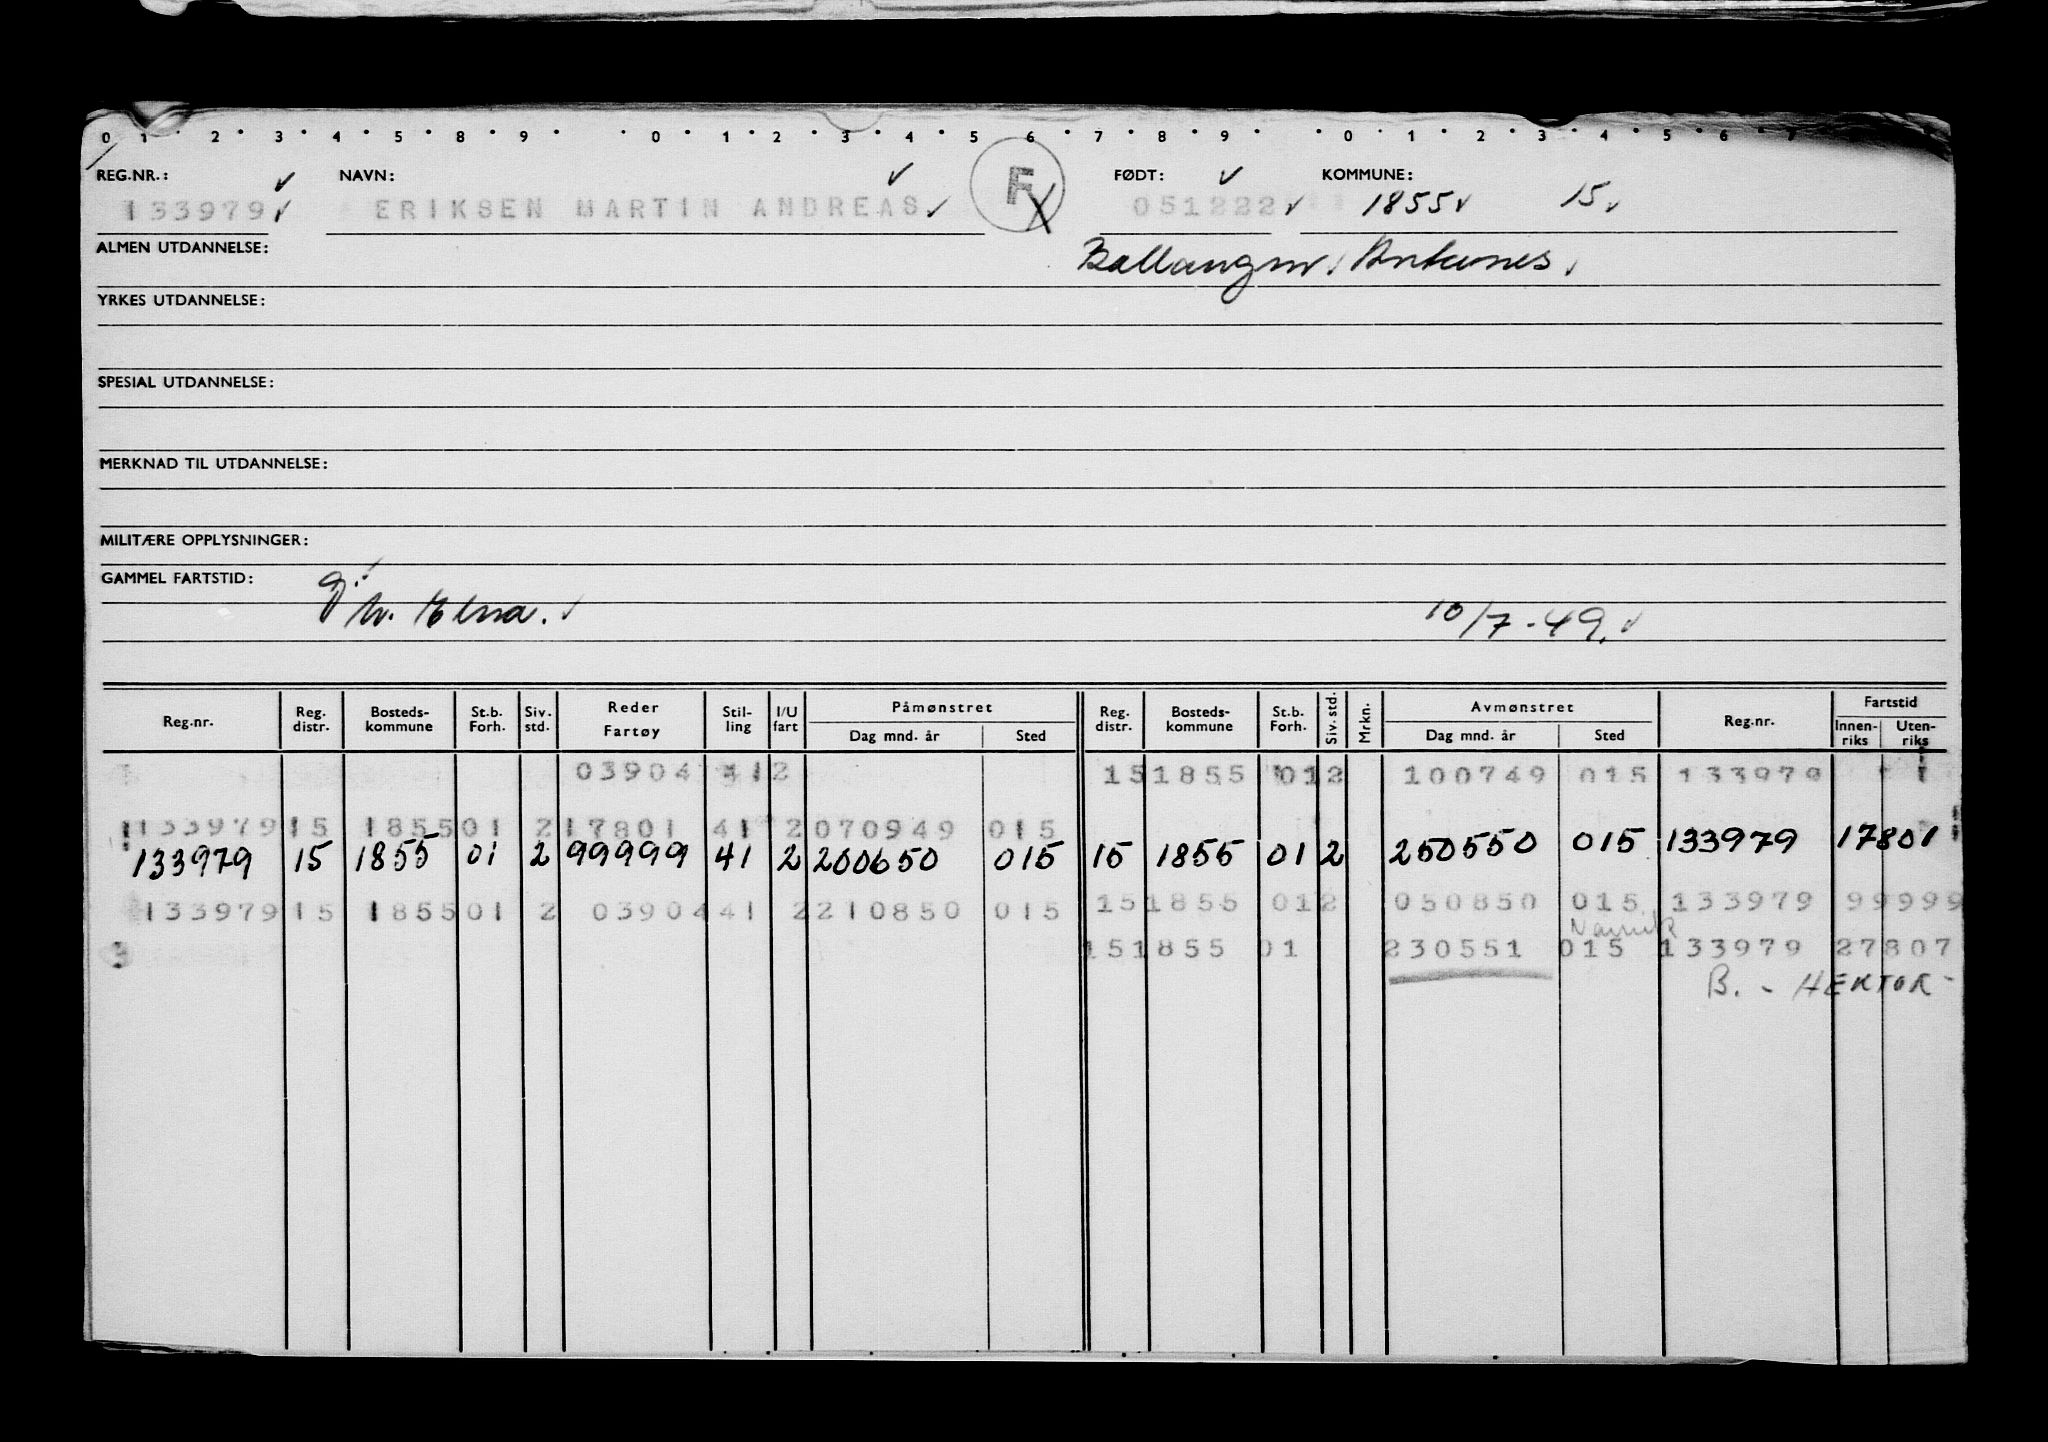 0 1 2 3 4 5 8 9 0 1 2 3 4 5 6 7 8 9 0 1 2 3 4 5 6 7
REG.NR.: NAVN: FØDT: KOMMUNE:
133979 ERIKSEN MARTIN ANDREAS F 051222 1855 15
ALMEN UTDANNELSE:
YRKES UTDANNELSE:
SPESIAL UTDANNELSE:
MERKNAD TIL UTDANNELSE:
MILITÆRE OPPLYSNINGER:
GAMMEL FARTSTID:
Elna. 10/7-49.
Reg.nr. Reg. distr. Bosteds-kommune St.b. Forh. Siv. std. Reder Fartøy Stil-ling I/U fart Påmønstret Dag mnd. år Sted Reg. distr. Bosteds-kommune St.b. Forh. Siv. std. Mrkn. Avmønstret Dag mnd. år Sted Reg.nr. Fartstid Innen-riks Uten-riks
03904 412 15 1855 01 2 100749 015 133979
133979 15 1855 01 2 17801 41 2 070949 015
133979 15 1855 01 2 99999 41 2 200650 015 15 1855 01 2 250550 015 133979 17801
133979 15 1855 01 2 03904 41 2 210850 015 15 1855 01 2 050850 015 133979 99999
Narvik
15 1855 01 230551 015 133979 27807
B. - HEKTOR -